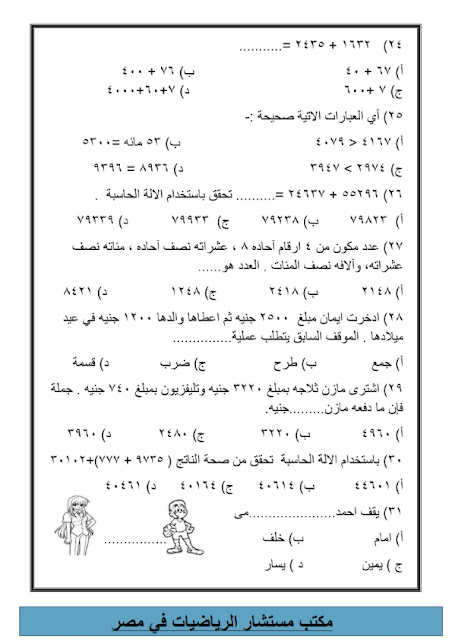 ٢٤) ١٦٣٢ + ٢٤٣٥ =...........
أ) ٦٧ + ٤٠ ب) ٧٦ + ٤٠٠
ج) ٧ +٦٠٠ د) ٧+٦٠+٤٠٠٠
٢٥) أي العبارات الاتية صحيحة :-
أ) ٤١٦٧ < ٤٠٧٩ ب) ٥٣ مائه =٥٣٠٠
ج) ٢٩٧٤ > ٣٩٤٧ د) ٨٩٣٦ = ٩٣٩٦
٢٦) ٥٥٢٩٦ + ٢٤٦٣٧ =.......... تحقق باستخدام الالة الحاسبة .
أ) ٧٩٨٢٣ ب) ٧٩٢٣٨ ج) ٧٩٩٣٣ د) ٧٩٣٣٩
٢٧) عدد مكون من ٤ ارقام آحاده ٨ ، عشراته نصف آحاده ، مئاته نصف
عشراته، وآلافه نصف المئات . العدد هو......
أ) ٢١٤٨ ب) ٢٤١٨ ج) ١٢٤٨ د) ٨٤٢١
٢٨) ادخرت ايمان مبلغ ٢٥٠٠ جنيه ثم اعطاها والدها ١٢٠٠ جنيه في عيد
ميلادها . الموقف السابق يتطلب عملية...............
أ) جمع ب) طرح ج) ضرب د) قسمة
٢٩) اشترى مازن ثلاجه بمبلغ ٣٢٢٠ جنيه وتليفزيون بمبلغ ٧٤٠ جنيه . جملة
فإن ما دفعه مازن.........جنيه.
أ) ٤٩٦٠ ب) ٣٢٢٠ ج) ٢٤٨٠ د) ٣٩٦٠
٣٠) باستخدام الالة الحاسبة تحقق من صحة الناتج ( ٩٧٣٥ + ٧٧٧)+٣٠١٠٢
أ) ٤٤٦٠١ ب) ٤٠٦١٤ ج) ٤٠١٦٤ د) ٤٠٤٦١
٣١) يقف احمد......................مى
أ) امام ب) خلف ................
ج ) يمين د ) يسار
مكتب مستشار الرياضيات في مصر